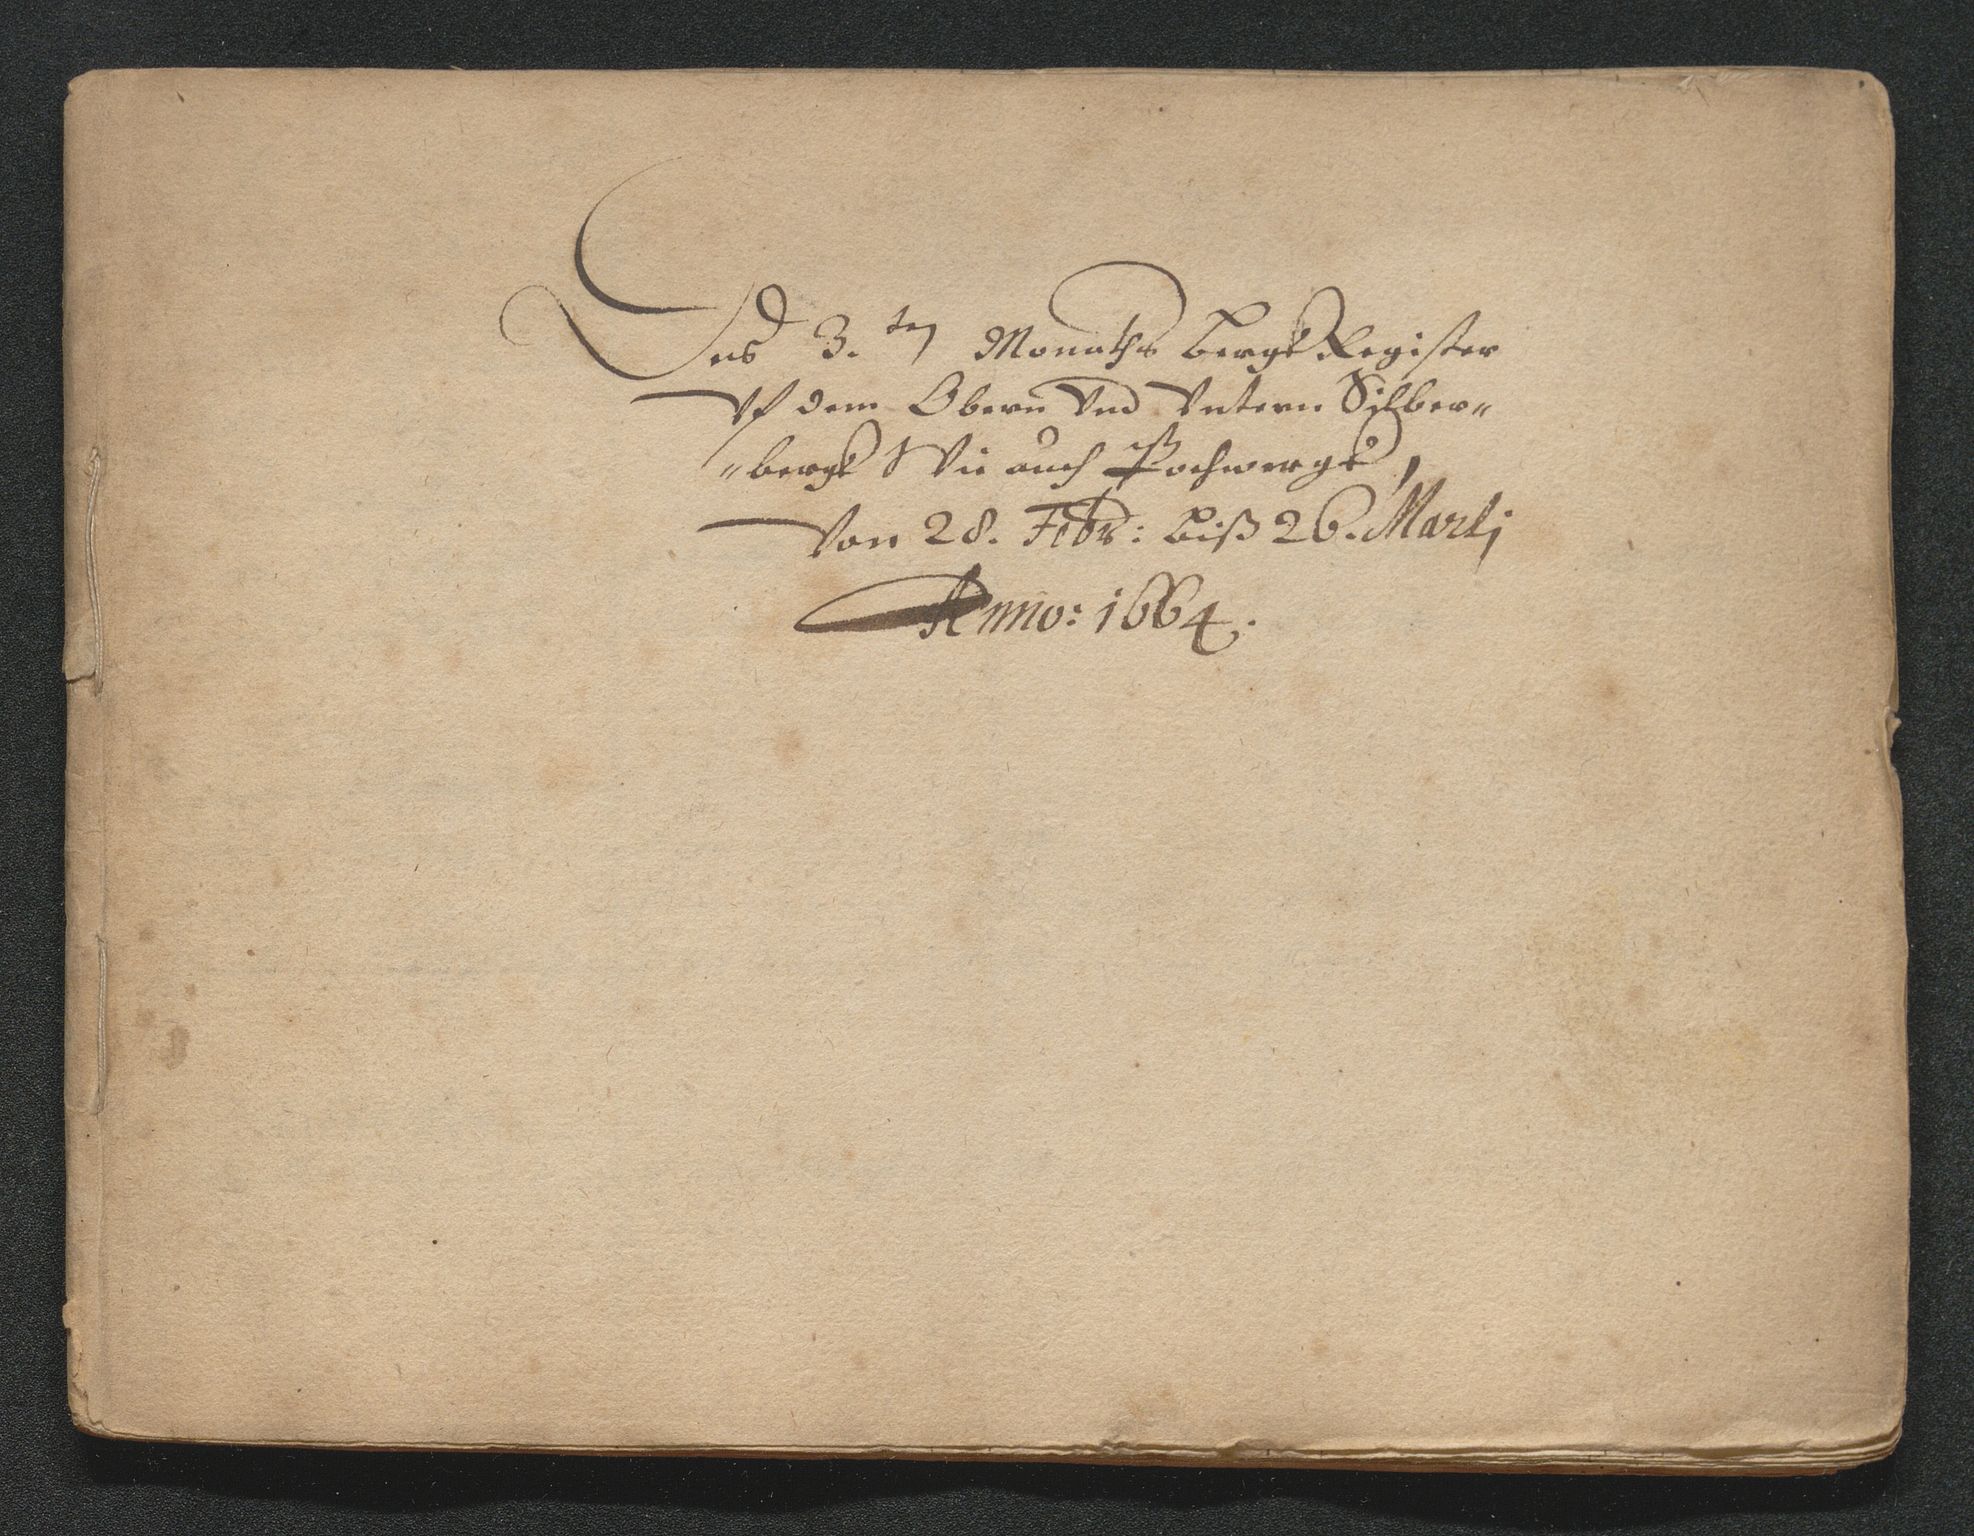 Des 3.ten Monaths Bergk Register
Vf dem Obern Vnd Vntern Silber=
=bergk Wie auch Pochwergk,
Von 28. Febr: biß 26. Martj
Anno: 1664.